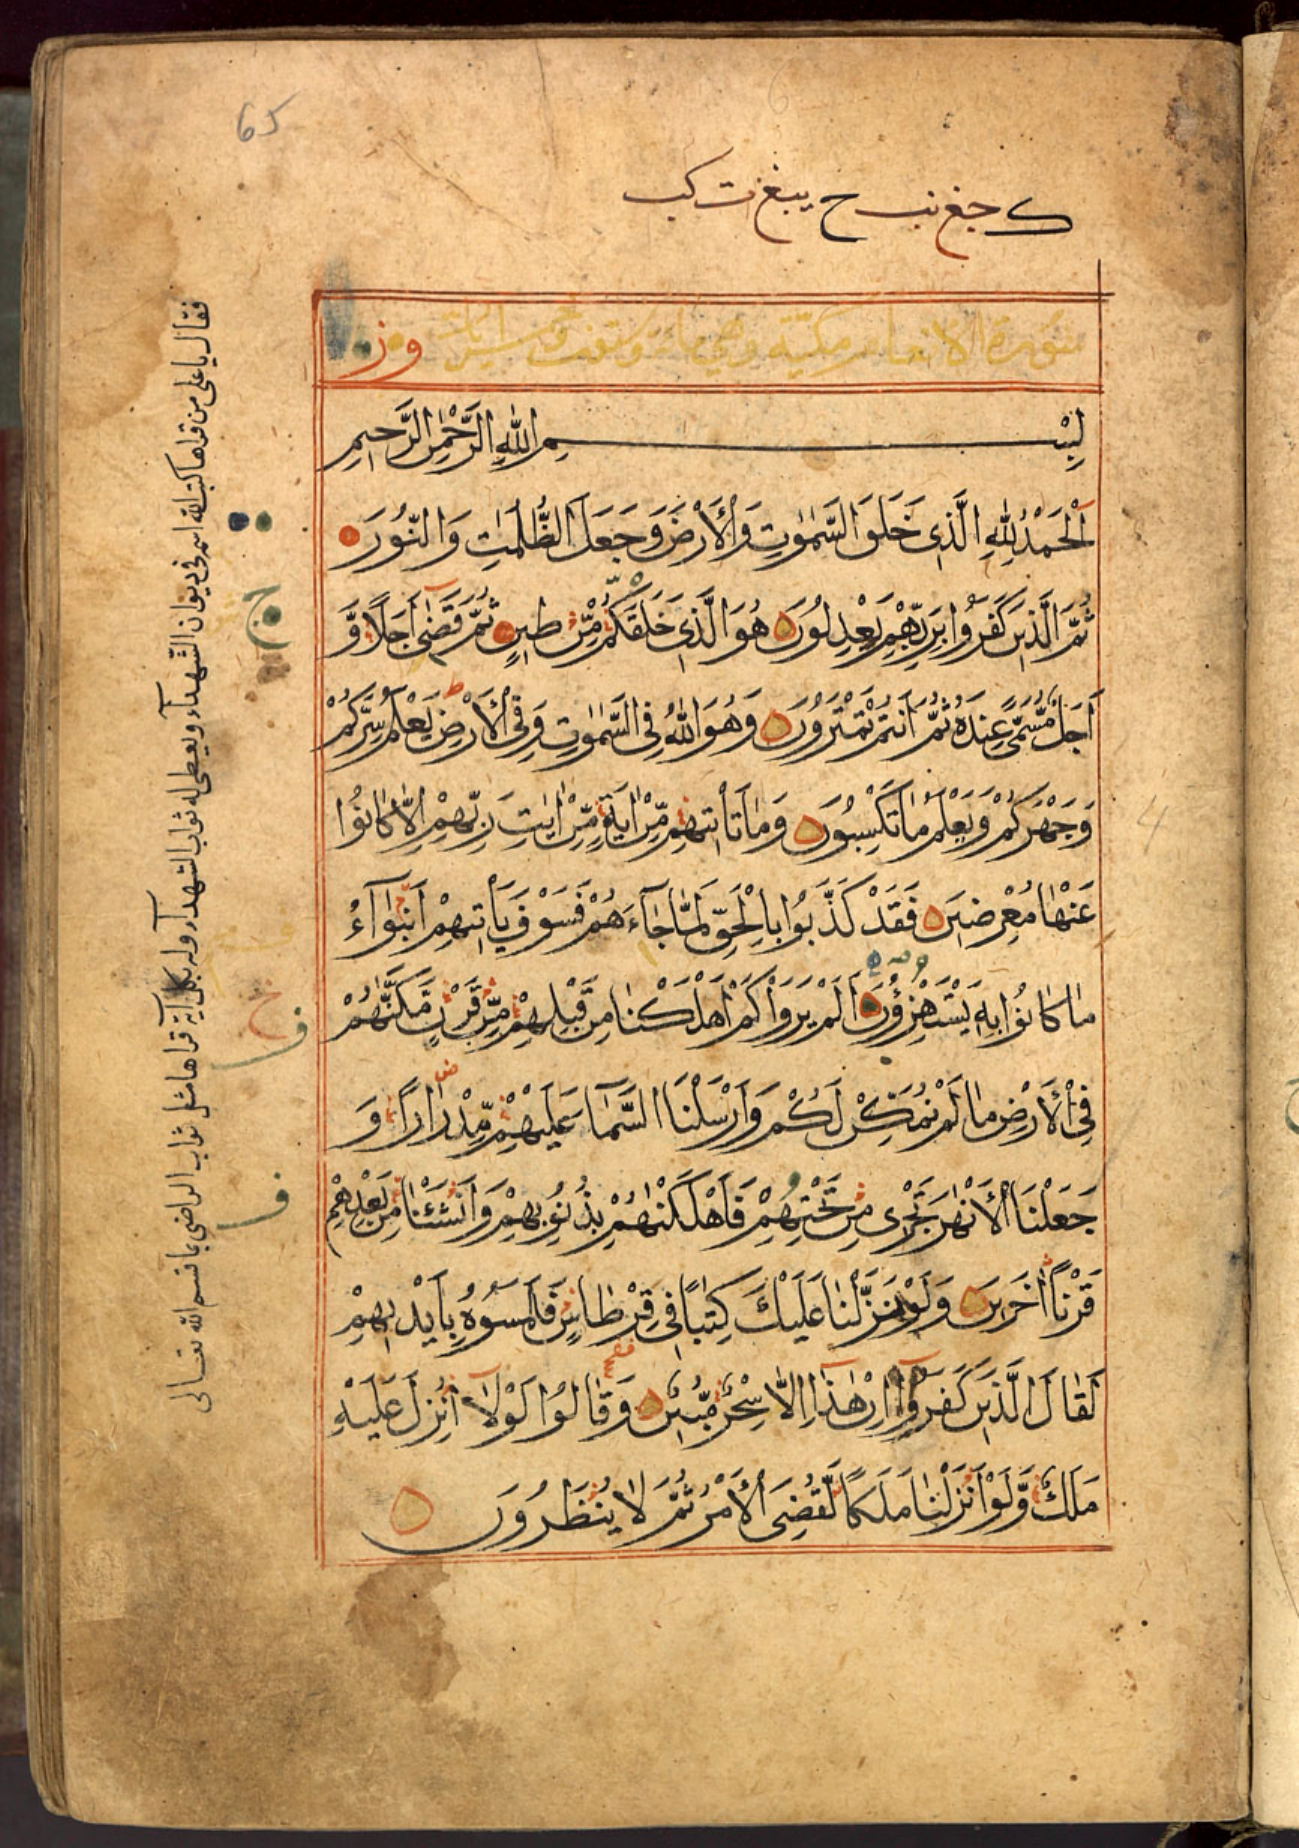 65
سورة الانعام مكية وهي مائة وستون وخمس ايات
بِسْمِ اللّٰهِ الرَّحْمٰنِ الرَّحِيمِ
اَلْحَمْدُ لِلّٰهِ الَّذِى خَلَقَ السَّمٰوٰتِ وَالْاَرْضَ وَجَعَلَ الظُّلُمٰتِ وَالنُّوْرَ
ثُمَّ الَّذِيْنَ كَفَرُوْا بِرَبِّهِمْ يَعْدِلُوْنَ هُوَ الَّذِى خَلَقَكُمْ مِّنْ طِيْنٍ ثُمَّ قَضٰى اَجَلًا وَّ
اَجَلٌ مُّسَمًّى عِنْدَهُ ثُمَّ اَنْتُمْ تَمْتَرُوْنَ وَهُوَ اللّٰهُ فِى السَّمٰوٰتِ وَفِى الْاَرْضِ يَعْلَمُ سِرَّكُمْ
وَجَهْرَكُمْ وَيَعْلَمُ مَا تَكْسِبُوْنَ وَمَا تَاْتِيْهِمْ مِّنْ اٰيَةٍ مِّنْ اٰيٰتِ رَبِّهِمْ اِلَّا كَانُوْا
عَنْهَا مُعْرِضِيْنَ فَقَدْ كَذَّبُوْا بِالْحَقِّ لَمَّا جَآءَهُمْ فَسَوْفَ يَاْتِيْهِمْ اَنْبٰٓؤُا
مَا كَانُوْا بِهٖ يَسْتَهْزِؤُنَ اَلَمْ يَرَوْا كَمْ اَهْلَكْنَا مِنْ قَبْلِهِمْ مِّنْ قَرْنٍ مَّكَّنّٰهُمْ
فِى الْاَرْضِ مَا لَمْ نُمَكِّنْ لَكُمْ وَاَرْسَلْنَا السَّمَآءَ عَلَيْهِمْ مِّدْرَارًا وَ
جَعَلْنَا الْاَنْهٰرَ تَجْرِى مِنْ تَحْتِهِمْ فَاَهْلَكْنٰهُمْ بِذُنُوْبِهِمْ وَاَنْشَئْنَا مِنْ بَعْدِهِمْ
قَرْنًا اٰخَرِيْنَ وَلَوْ نَزَّلْنَا عَلَيْكَ كِتٰبًا فِى قِرْطَاسٍ فَلَمَسُوْهُ بِاَيْدِيْهِمْ
لَقَالَ الَّذِيْنَ كَفَرُوْٓا اِنْ هٰذَا اِلَّا سِحْرٌ مُّبِيْنٌ وَقَالُوْا لَوْلَآ اُنْزِلَ عَلَيْهِ
مَلَكٌ وَّلَوْ اَنْزَلْنَا مَلَكًا لَّقُضِىَ الْاَمْرُ ثُمَّ لَا يُنْظَرُوْنَ
فقال يا على من قراها كتب الله اسمه فى ديوان الشهدآء ويعطى له ثواب الشهدآء وله بكل آية قراها مثل ثواب الراضى بما قسم الله تعالى